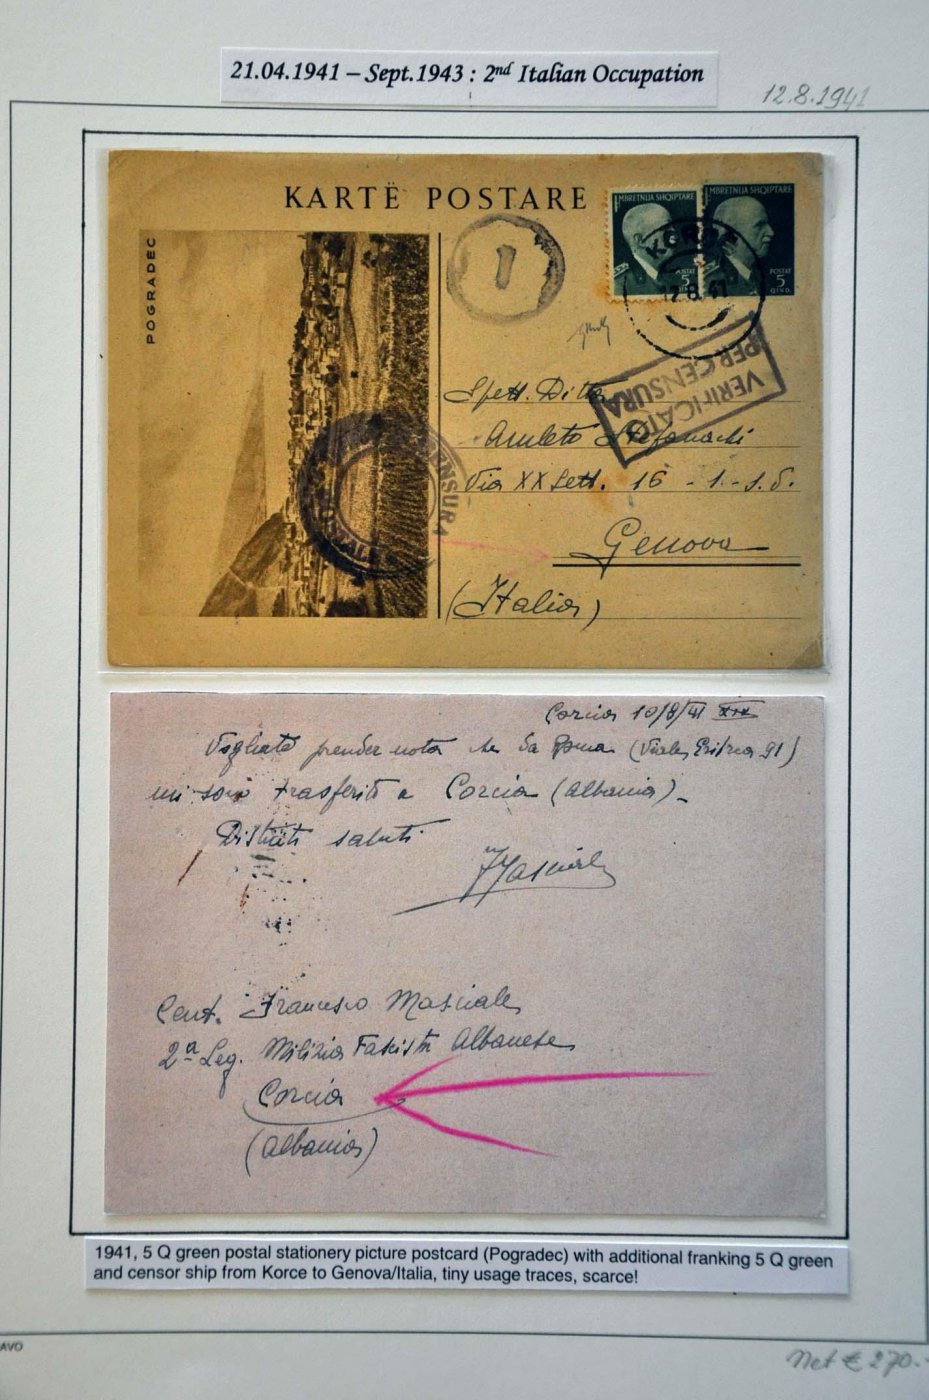 21.04.1941 – Sept.1943 : 2nd Italian Occupation
12.8.1941
KARTË POSTARE
POGRADEC
MBRETNIJA SHQIPTARE
POSTAT
5
QIND.
MBRETNIJA SHQIPTARE
POSTAT
5
QIND.
KORÇË
12.8.41
1
VERIFICATO
PER CENSURA
CENSURA
POSTALE
Spett. Ditta
Amleto Stefanachi
Via XX Sett. 16 - 1 - s.d.
Genova
(Italia)
Corcia 10/8/41 XIX
Vogliate prender nota che da Roma (Viale Eritrea 91)
mi sono trasferito a Corcia (Albania).
Distinti saluti
Cent. Francesco Masciale
2ª Leg. Milizia Fascista Albanese
Corcia
(Albania)
1941, 5 Q green postal stationery picture postcard (Pogradec) with additional franking 5 Q green
and censor ship from Korce to Genova/Italia, tiny usage traces, scarce!
AVO
Net € 270.-